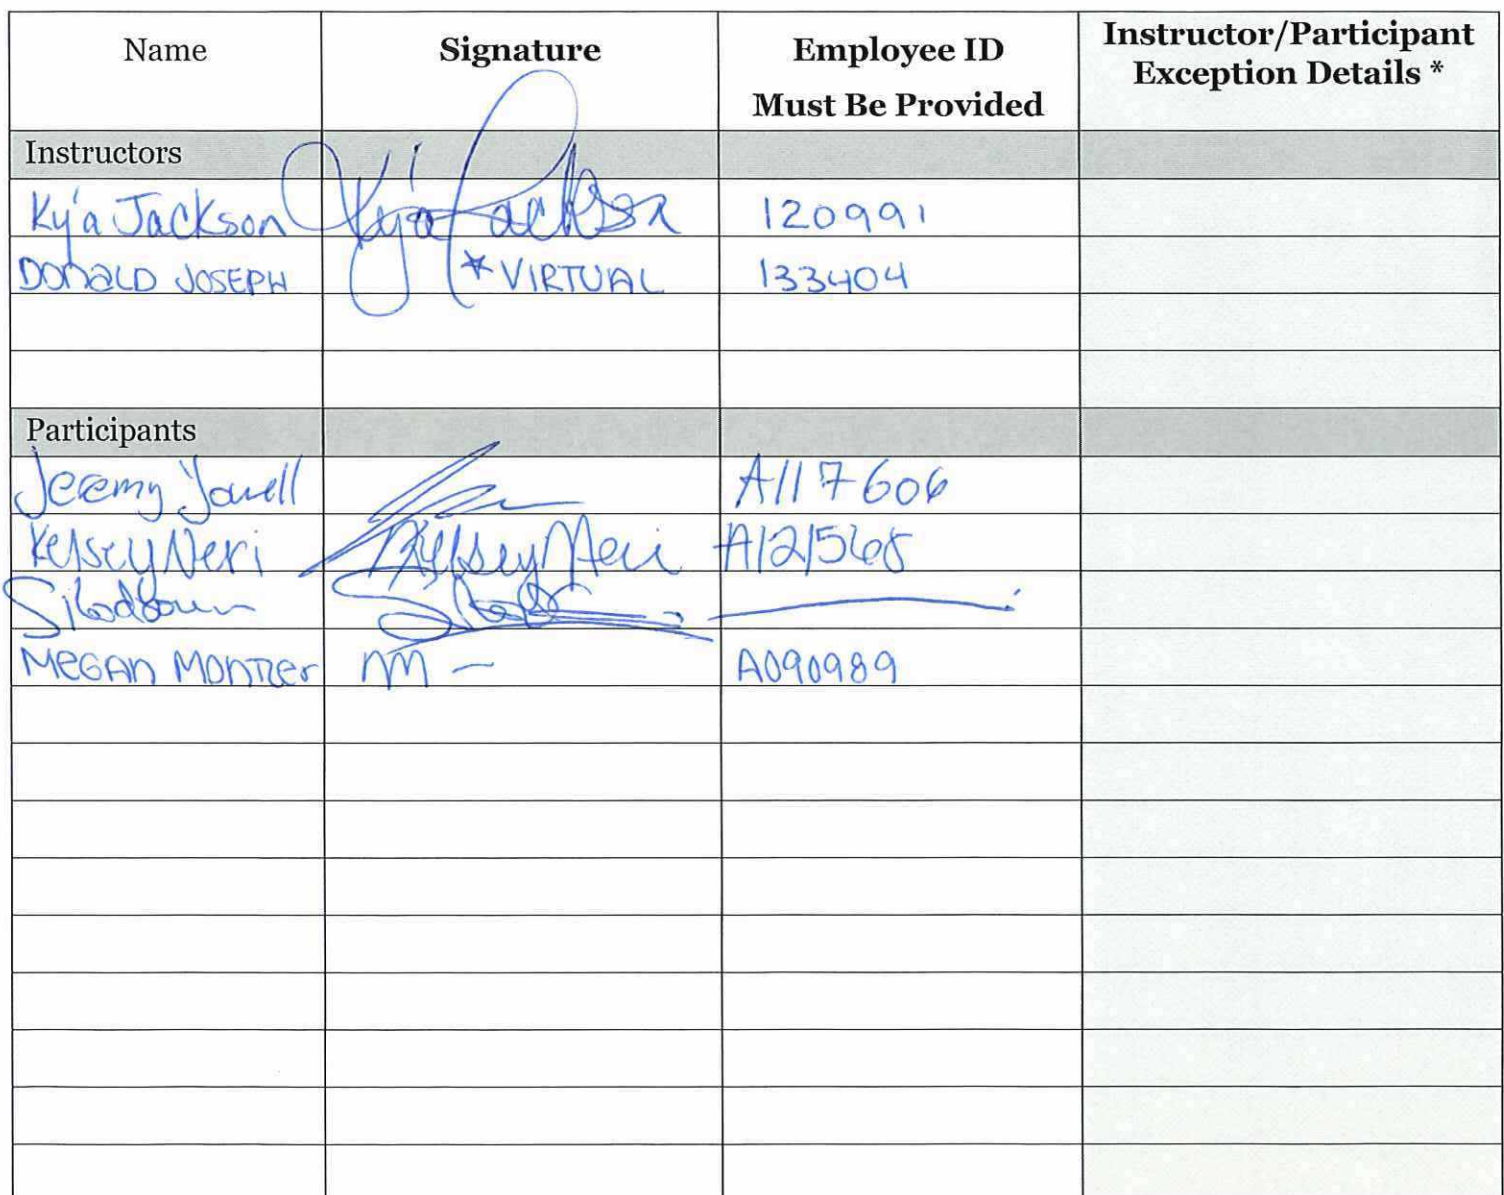 Name Signature Employee ID Must Be Provided Instructor/Participant Exception Details *
Instructors
Ky'a Jackson Ky'a Jackson 120991
DONALD JOSEPH *VIRTUAL 133404
Participants
Jeremy A117606
Kelsey Neri Kelsey Neri A121568
MEGAN MM - A090989